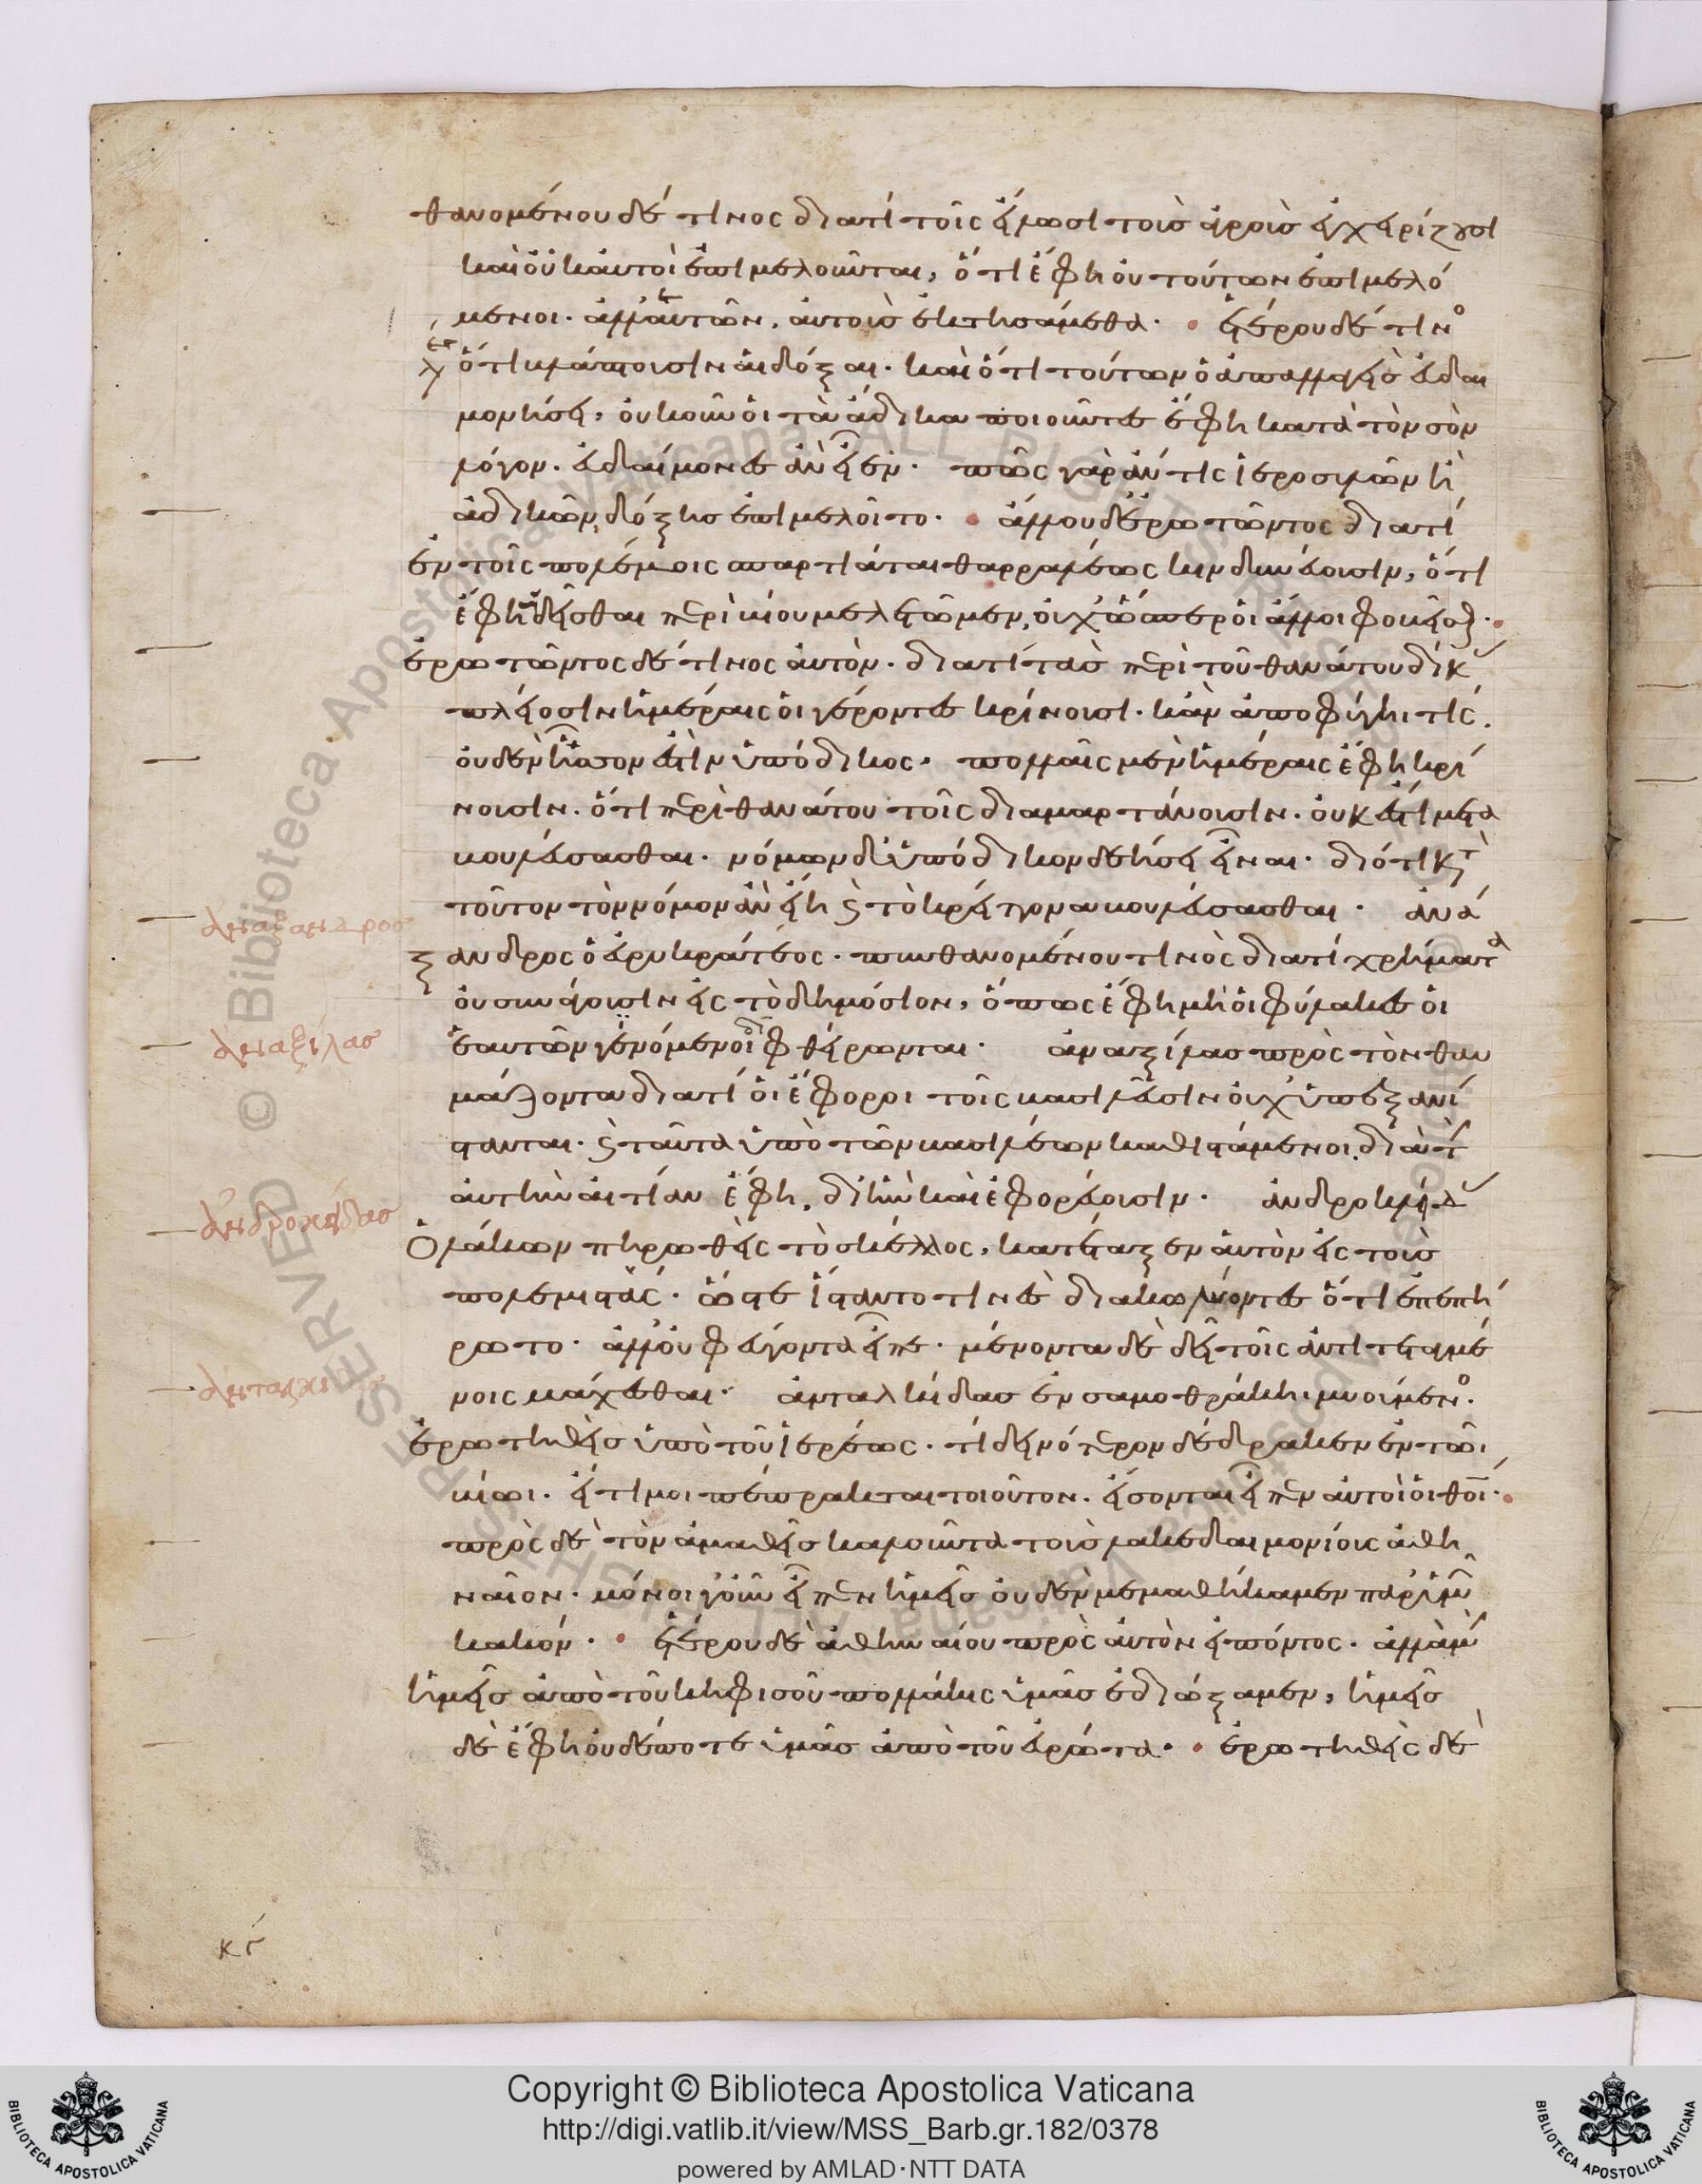 θανομένου δέ τινος διατί τοῖς εἵλωσι τοὺς ἀγροὺς ἐγχειρίζουσι
καὶ οὐκ αὐτοὶ ἐπιμελοῦνται, ὅτι ἔφη οὐ τούτων ἐπιμελό
μενοι. ἀλλ' αὐτῶν, αὐτοὺς ἐκτησάμεθα. ἑτέρου δέ τινο
ὅτι βλάπτουσιν αἱ δόξαι. καὶ ὅτι τούτων ὁ ἀπαλλαγεὶς εὐδαι
μονήσει, οὐκοῦν οἱ τὰ ἄδικα ποιοῦντες ἔφη κατὰ τὸν σὸν
λόγον. εὐδαίμονες ἂν εἶεν. πῶς γὰρ ἄν τις ἱεροσυλῶν ἢ
ἀδικῶν δόξης ἐπιμελοῖτο. ἄλλου δ' ἐρωτῶντος διατί
ἐν τοῖς πολέμοις σπαρτιᾶται θαρραλέως κινδυνεύουσιν, ὅτι
ἔφη αἰδεῖσθαι περὶ βίου μελετῶμεν, οὐχ ὥσπερ οἱ ἄλλοι φοβεῖσθ.
ἐρωτῶντος δέ τινος αὐτὸν. διατί τὰς περὶ τοῦ θανάτου δίκ
πλείοσιν ἡμέραις οἱ γέροντες κρίνουσι. κἂν ἀποφύγηι τίς.
οὐδὲν ἧσσον ἐστὶν ὑπόδικος. πολλαῖς μὲν ἡμέραις ἔφη κρί
νουσιν. ὅτι περὶ θανάτου τοῖς διαμαρτάνουσιν. οὐκ ἔστι μετα
βουλεύσασθαι. νόμων δ' ὑπόδικον δεήσει εἶναι. διότι κτ
τοῦτον τὸν νόμον ἂν εἴη τὸ κρεῖττον βουλεύσασθαι. ἀνά
ξανδρος ὁ εὐρυκράτεος. πυνθανομένου τινὸς διατί χρήματ
οὐ συνάγουσιν εἰς τὸ δημόσιον, ὅπως ἔφη μὴ οἱ φύλακες οἱ
ἑαυτῶν γενόμενοι φθείρωνται. ἀναξίλας πρὸς τὸν θαυ
μάζοντα διατί οἱ ἔφοροι τοῖς βασιλεῦσιν οὐχ ὑπεξανί
στανται. ταῦτα ὑπὸ τῶν βασιλέων καθιστάμενοι, διὰ τ
αὐτὴν αἰτίαν ἔφη, δι' ἣν καὶ ἐφορεύουσιν. ἀνδροκλείδ
ὁ λάκων πηρωθεὶς τὸ σκέλος, κατέταξεν αὐτὸν εἰς τοὺς
πολεμιστάς. ὥστε ἵσταντο τινὲς διακωλύοντες ὅτι ἐπεπή
ρωτο. ἀλλ' οὐ φεύγοντα εἶπε. μένοντα δὲ δεῖ τοῖς ἀντιτεταγμέ
νοις μάχεσθαι. ἀνταλκίδας ἐν σαμοθράκηι μυούμενο.
ἐρωτηθεὶς ὑπὸ τοῦ ἱερέως. τί δεινότερον δέδρακεν ἐν τῶι
βίωι. εἴ τι μοι πέπρακται τοιοῦτον. εἴσονται εἶπεν αὐτοὶ οἱ θεοί.
πρὸς δὲ τὸν ἀμαθεῖς καλοῦντα τοὺς λακεδαιμονίους ἀθη
ναῖον. μόνοι γοῦν εἶπεν ἡμεῖς οὐδὲν μεμαθήκαμεν παρ' ὑμῶν
κακόν. ἑτέρου δὲ ἀθηναίου πρὸς αὐτὸν εἰπόντος. ἀλλὰ μὴν
ἡμεῖς ἀπὸ τοῦ κηφισοῦ πολλάκις ὑμᾶς ἐδιώξαμεν, ἡμεῖς
δὲ ἔφη οὐδέποτε ὑμᾶς ἀπὸ τοῦ εὐρώτα. ἐρωτηθεὶς δὲ
ἀναξανδρος
ἀναξίλας
ἀνδροκλείδας
Copyright © Biblioteca Apostolica Vaticana
http://digi.vatlib.it/view/MSS_Barb.gr.182/0378
powered by AMLAD·NTT DATA
BIBLIOTECA APOSTOLICA VATICANA
BIBLIOTECA APOSTOLICA VATICANA